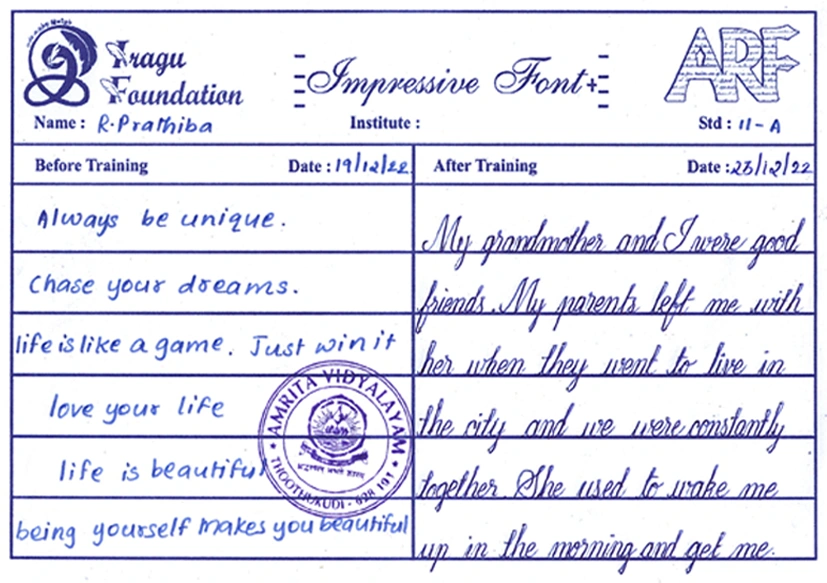 Iragu
Foundation
Impressive Font
ARF
Name : R. Prathiba
Institute :
Std : 11-A
Before Training
Date : 19/12/22
After Training
Date : 23/12/22
Always be unique.
Chase your dreams.
life is like a game. Just win it
love your life
life is beautiful
being yourself makes you beautiful
AMRITA VIDYALAYAM
THOOTHUKUDI - 628 101
My grandmother and I were good
friends. My parents left me with
her when they went to live in
the city and we were constantly
together. She used to wake me
up in the morning and get me.